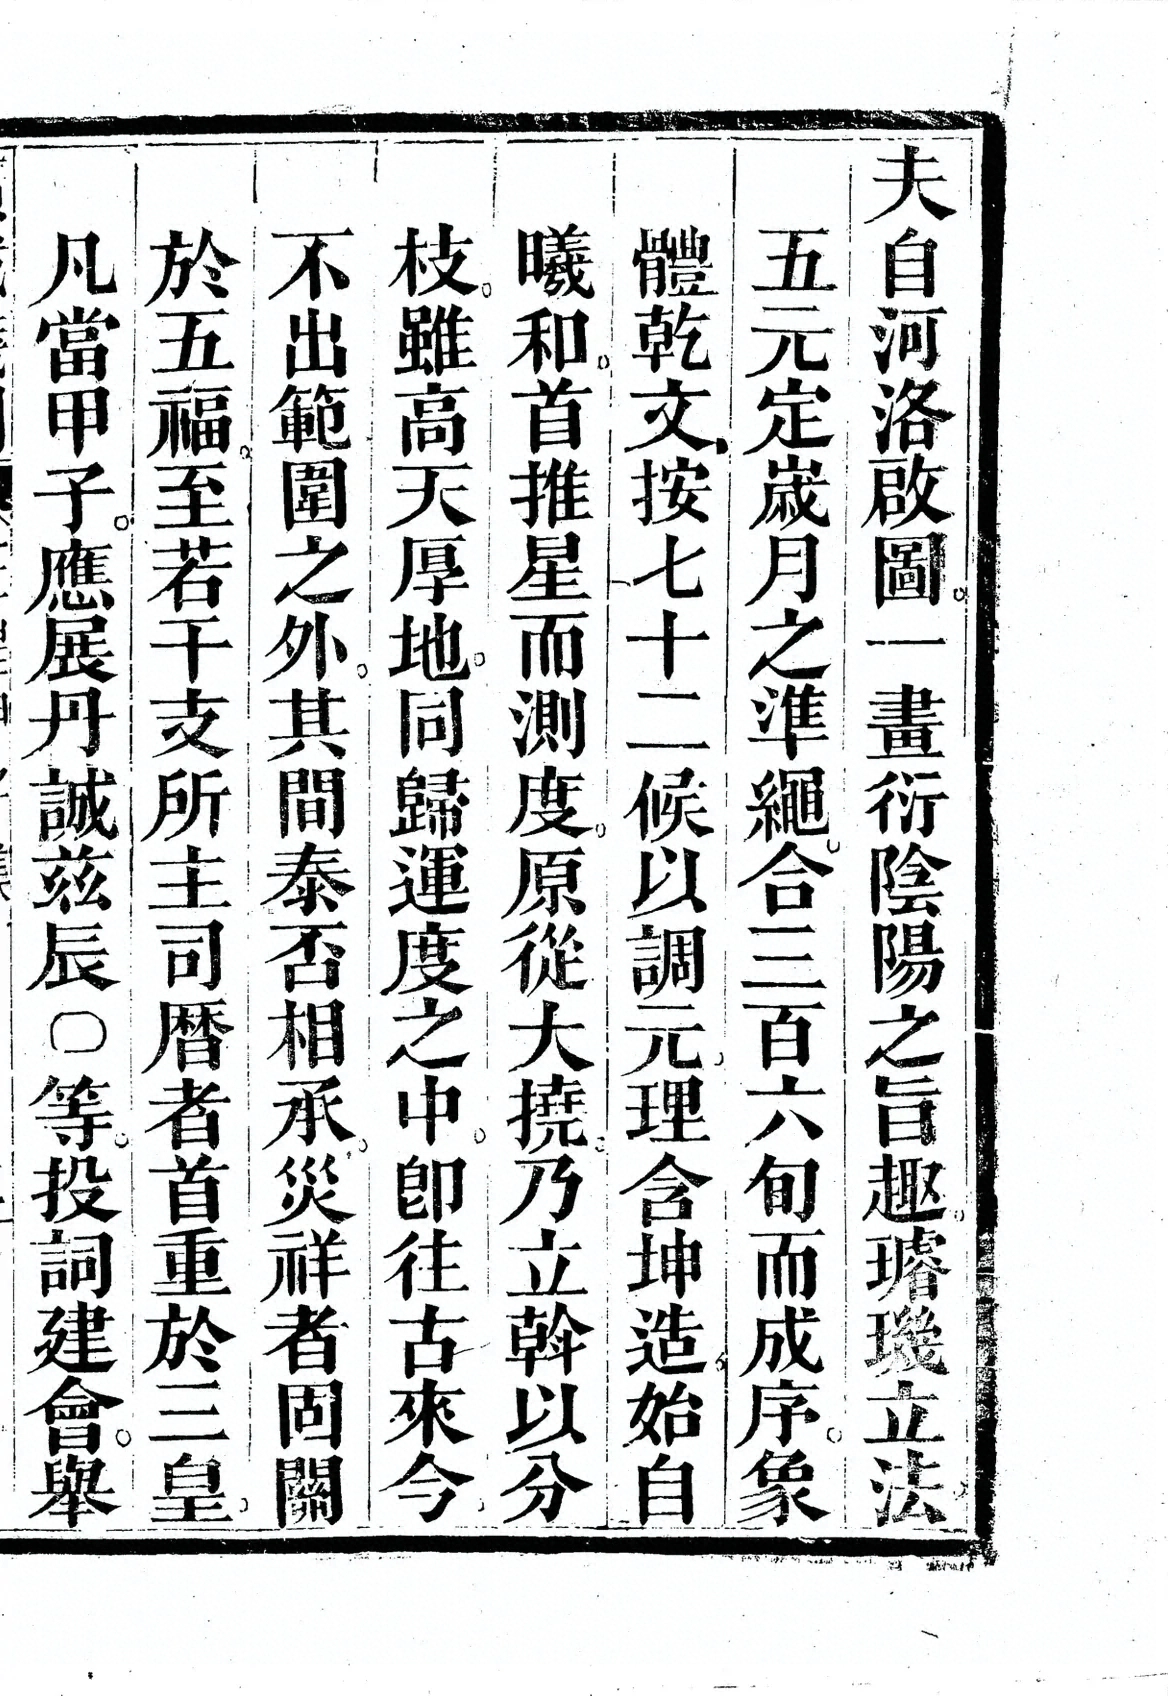 夫自河洛啟圖。一畫衍陰陽之旨趣。璿璣立法。
五元定嵗月之準繩。合三百六旬而成序。象
體乾文、按七十二候以調元。理含坤造。始自
曦和。首推星而測度。原從大撓。乃立斡以分
枝。雖高天厚地。同歸運度之中。卽往古來今。
不出範圍之外。其間泰否相承。災祥者固關
於五福。至若干支所主司曆者首重於三皇。
凡當甲子。應展丹誠兹辰〇等。投詞建會。舉